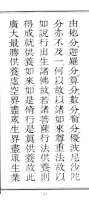 由他迦羅分算分數分喻分優波尼沙陀
分亦不及一何以故以諸如來尊重法故以
如說行出生諸佛故若諸菩薩行法供養則
得成就供養如來如是修行是真供養故此
廣大最勝供養虛空界盡眾生界盡眾生業